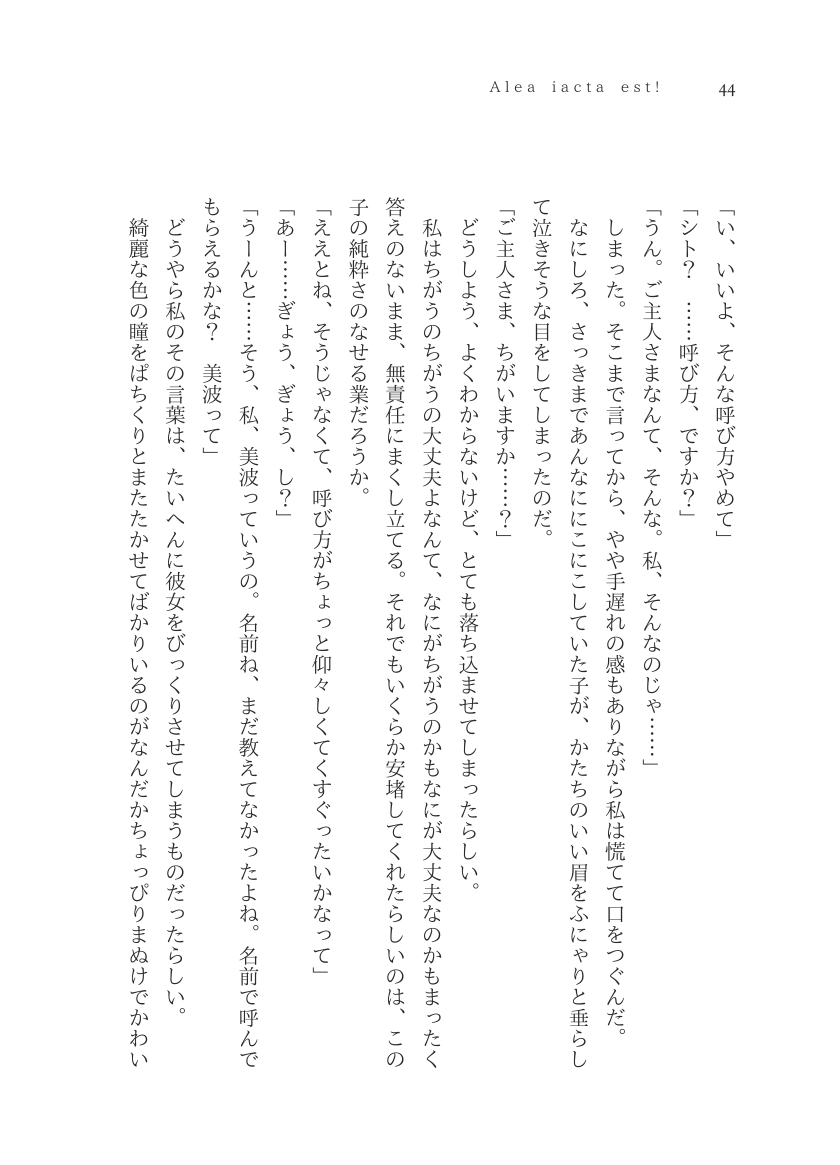 Alea iacta est!
44
「い、いいよ、そんな呼び方やめて」
「シト？　……呼び方、ですか？」
「うん。ご主人さまなんて、そんな。私、そんなのじゃ……」
　しまった。そこまで言ってから、やや手遅れの感もありながら私は慌てて口をつぐんだ。
　なにしろ、さっきまであんなににこにこしていた子が、かたちのいい眉をふにゃりと垂らし
て泣きそうな目をしてしまったのだ。
「ご主人さま、ちがいますか……？」
　どうしよう、よくわからないけど、とても落ち込ませてしまったらしい。
　私はちがうのちがうの大丈夫よなんて、なにがちがうのかもなにが大丈夫なのかもまったく
答えのないまま、無責任にまくし立てる。それでもいくらか安堵してくれたらしいのは、この
子の純粋さのなせる業だろうか。
「ええとね、そうじゃなくて、呼び方がちょっと仰々しくてくすぐったいかなって」
「あー……ぎょう、ぎょう、し？」
「うーんと……そう、私、美波っていうの。名前ね、まだ教えてなかったよね。名前で呼んで
もらえるかな？　美波って」
　どうやら私のその言葉は、たいへんに彼女をびっくりさせてしまうものだったらしい。
　綺麗な色の瞳をぱちくりとまたたかせてばかりいるのがなんだかちょっぴりまぬけでかわい